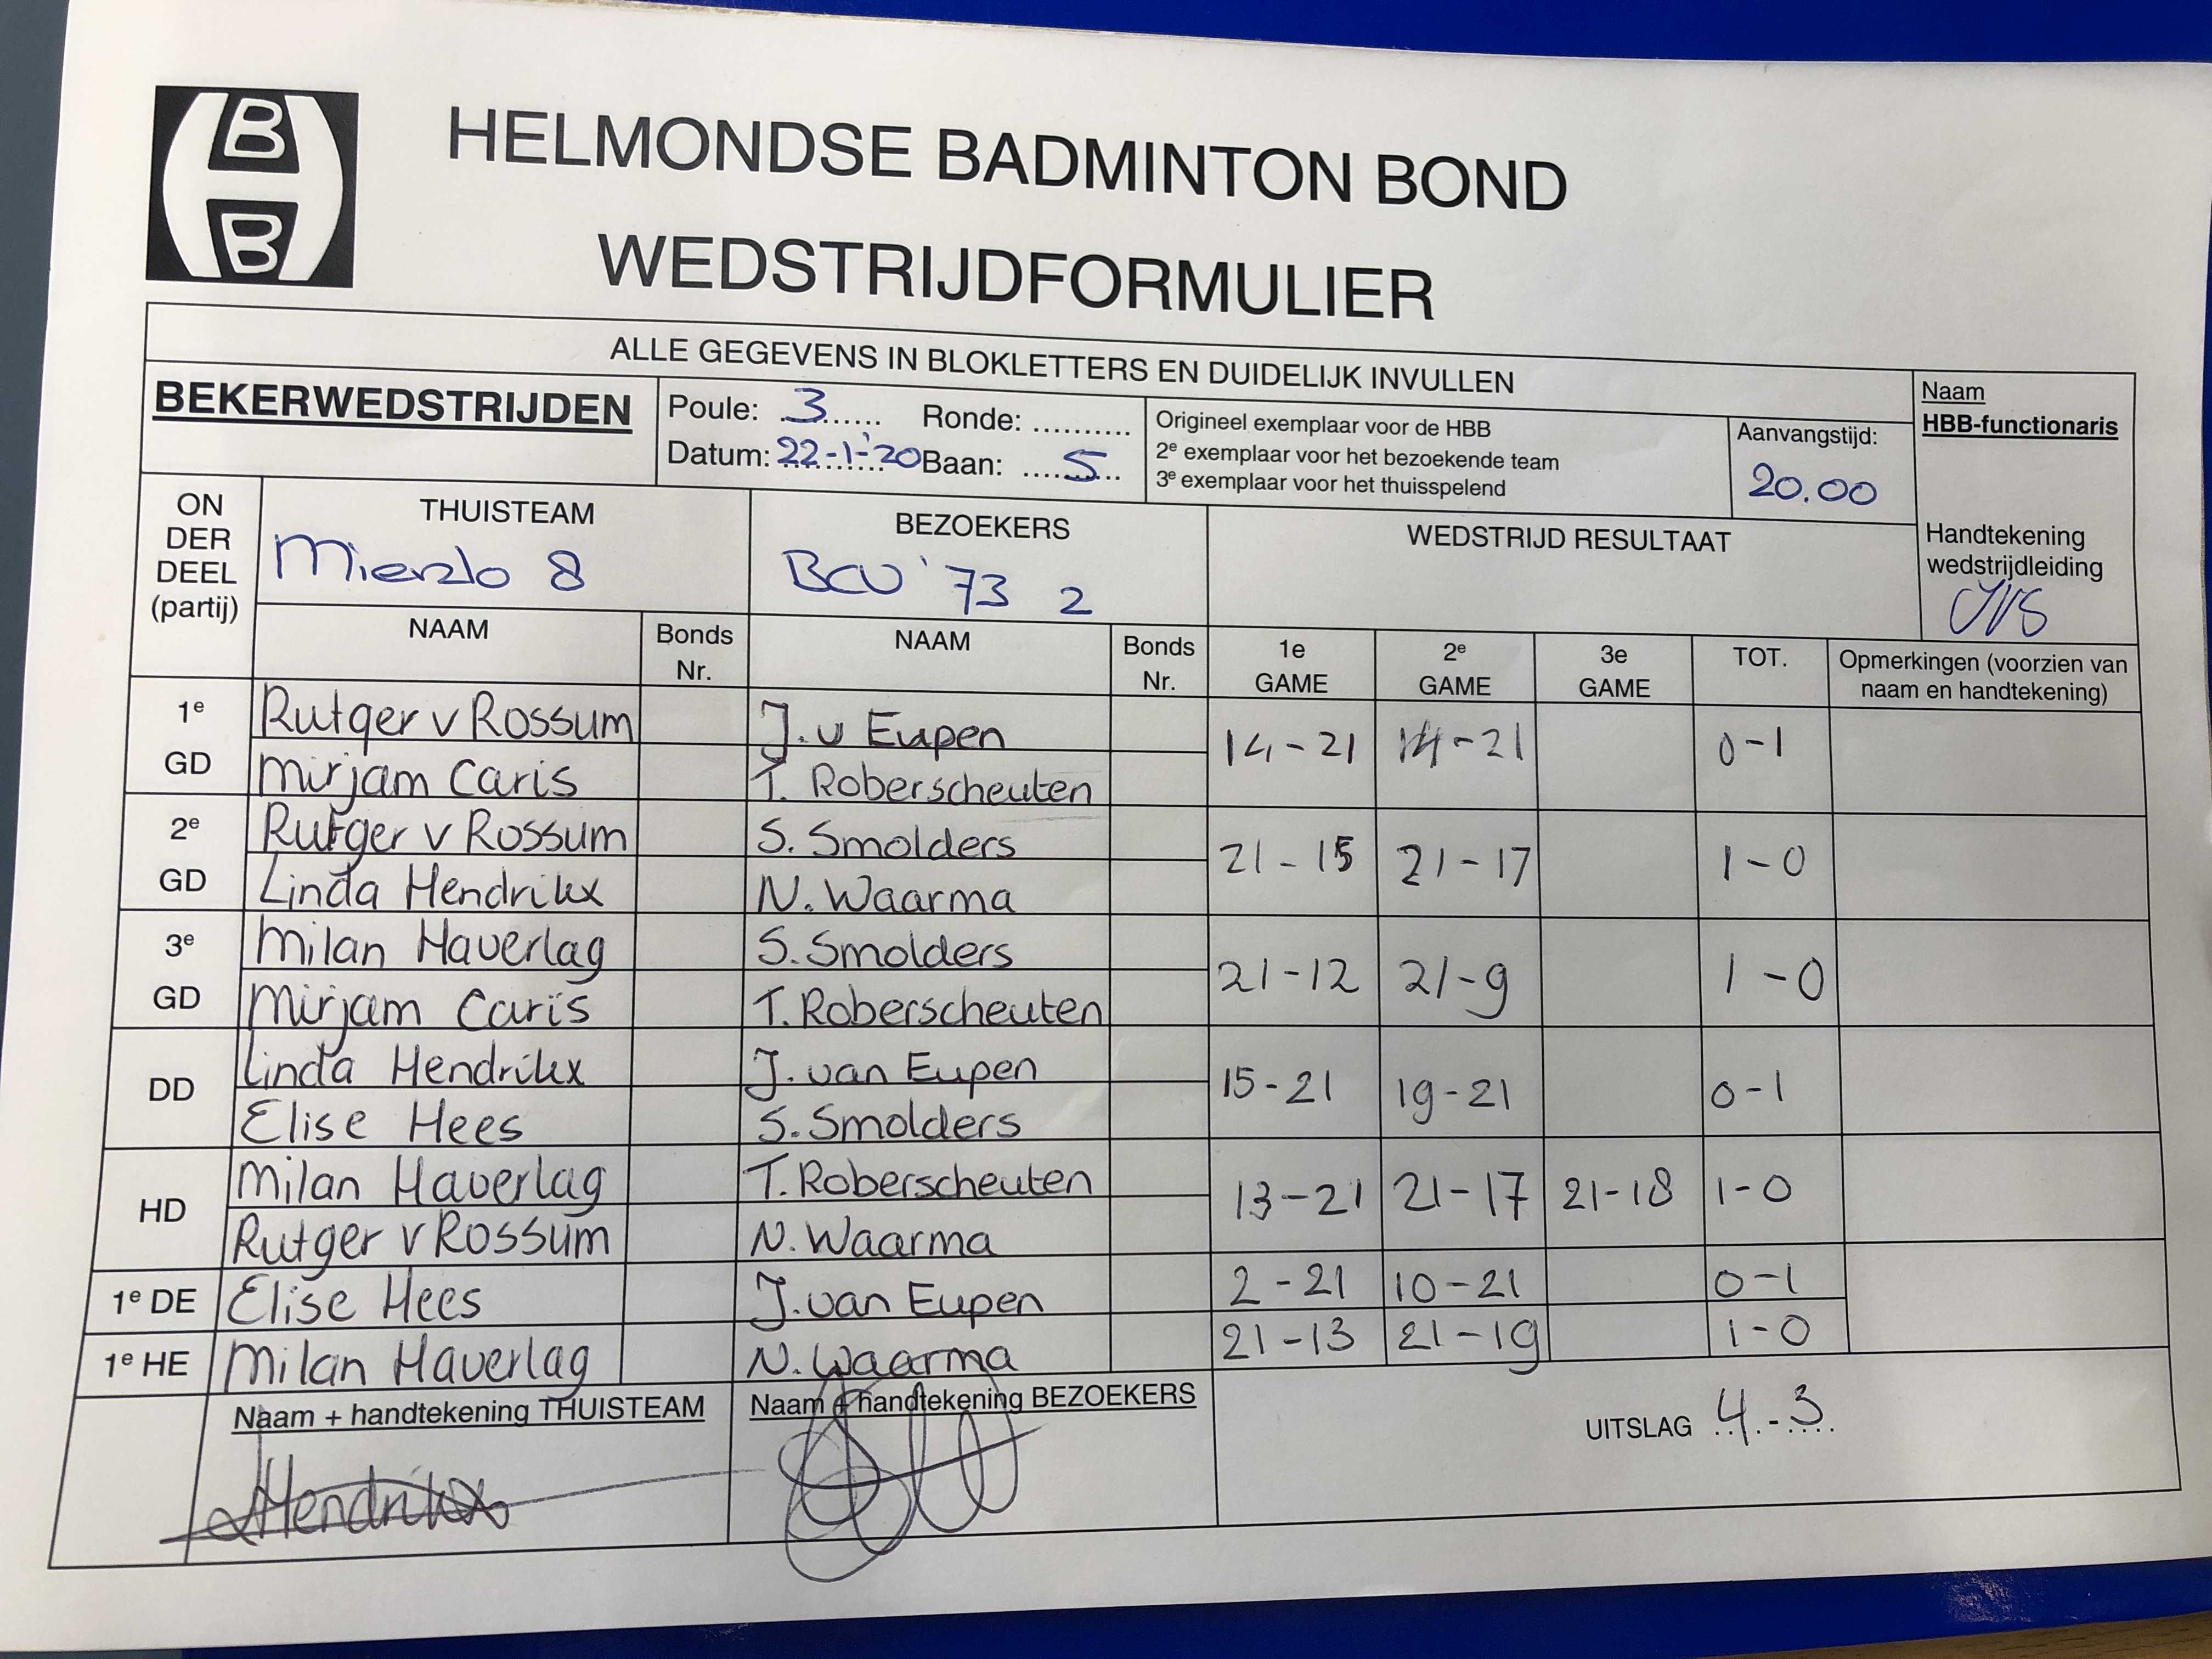 B
B
HELMONDSE BADMINTON BOND
WEDSTRIJDFORMULIER
ALLE GEGEVENS IN BLOKLETTERS EN DUIDELIJK INVULLEN
BEKERWEDSTRIJDEN
Poule: 3 Ronde: ..........
Datum: 22-1-'20 Baan: 5
Origineel exemplaar voor de HBB
2e exemplaar voor het bezoekende team
3e exemplaar voor het thuisspelend
Aanvangstijd:
20.00
Naam
HBB-functionaris
Handtekening
wedstrijdleiding
ON
DER
DEEL
(partij)
THUISTEAM
Mierlo 8
BEZOEKERS
BCV '73 2
WEDSTRIJD RESULTAAT
NAAM Bonds Nr. NAAM Bonds Nr. 1e GAME 2e GAME 3e GAME TOT. Opmerkingen (voorzien van naam en handtekening)
1e Rutger v Rossum J. v Eupen 14-21 14-21 0-1
GD Mirjam Caris T. Roberscheuten
2e Rutger v Rossum S. Smolders 21-15 21-17 1-0
GD Linda Hendrikx N. Waarma
3e Milan Haverlag S. Smolders 21-12 21-9 1-0
GD Mirjam Caris T. Roberscheuten
DD Linda Hendrikx J. van Eupen 15-21 19-21 0-1
Elise Hees S. Smolders
HD Milan Haverlag T. Roberscheuten 13-21 21-17 21-18 1-0
Rutger v Rossum N. Waarma
1e DE Elise Hees J. van Eupen 2-21 10-21 0-1
1e HE Milan Haverlag N. Waarma 21-13 21-19 1-0
Naam + handtekening THUISTEAM Naam + handtekening BEZOEKERS
UITSLAG 4-3
Hendrikx